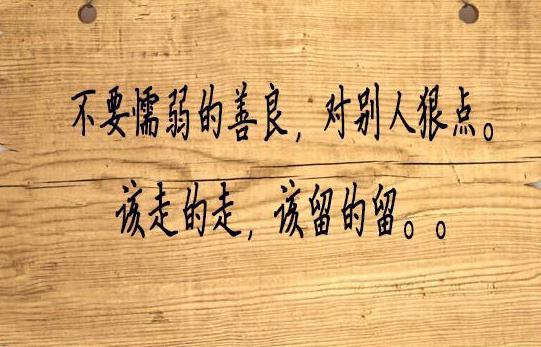 不要懦弱的善良，对别人狠点。
该走的走，该留的留。。